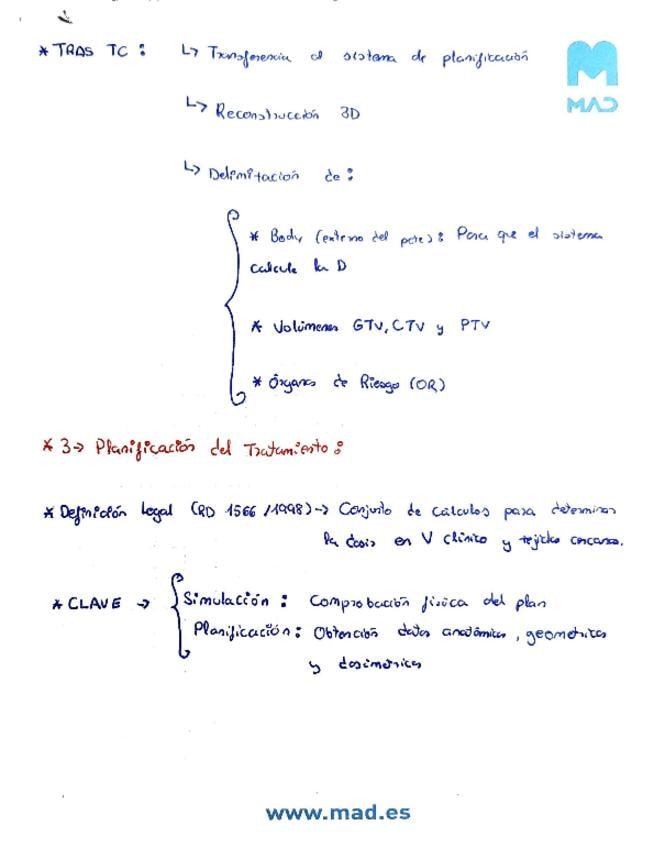 * TRAS TC : ↳ Transferencia al sistema de planificación
MAD
↳ Reconstrucción 3D
↳ Delimitación de :
* Body (externo del pcte) : Para que el sistema
calcule la D
* Volúmenes GTV, CTV y PTV
* Órganos de Riesgo (OR)
* 3-> Planificación del Tratamiento :
* Definición Legal (RD 1566/1998) -> Conjunto de cálculos para determinar
la dosis en V clínico y tejidos cercanos.
* CLAVE -> Simulación : Comprobación física del plan
Planificación : Obtención datos anatómicos, geométricos
y dosimétricos
www.mad.es